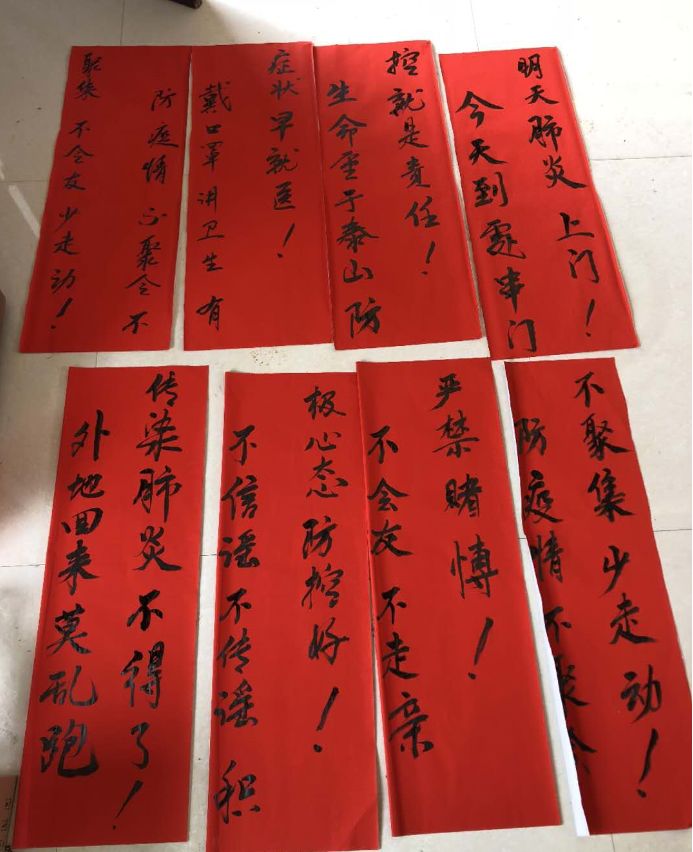 防疫情不聚会不
聚集不会友少走动！
戴口罩讲卫生有
症状早就医！
生命重于泰山防
控就是责任！
今天到處串门
明天肺炎上门！
外地回来莫乱跑
传染肺炎不得了！
不信谣不传谣积
极心态防控好！
不会友不走亲
严禁赌博！
防疫情不聚会
不聚集少走动！